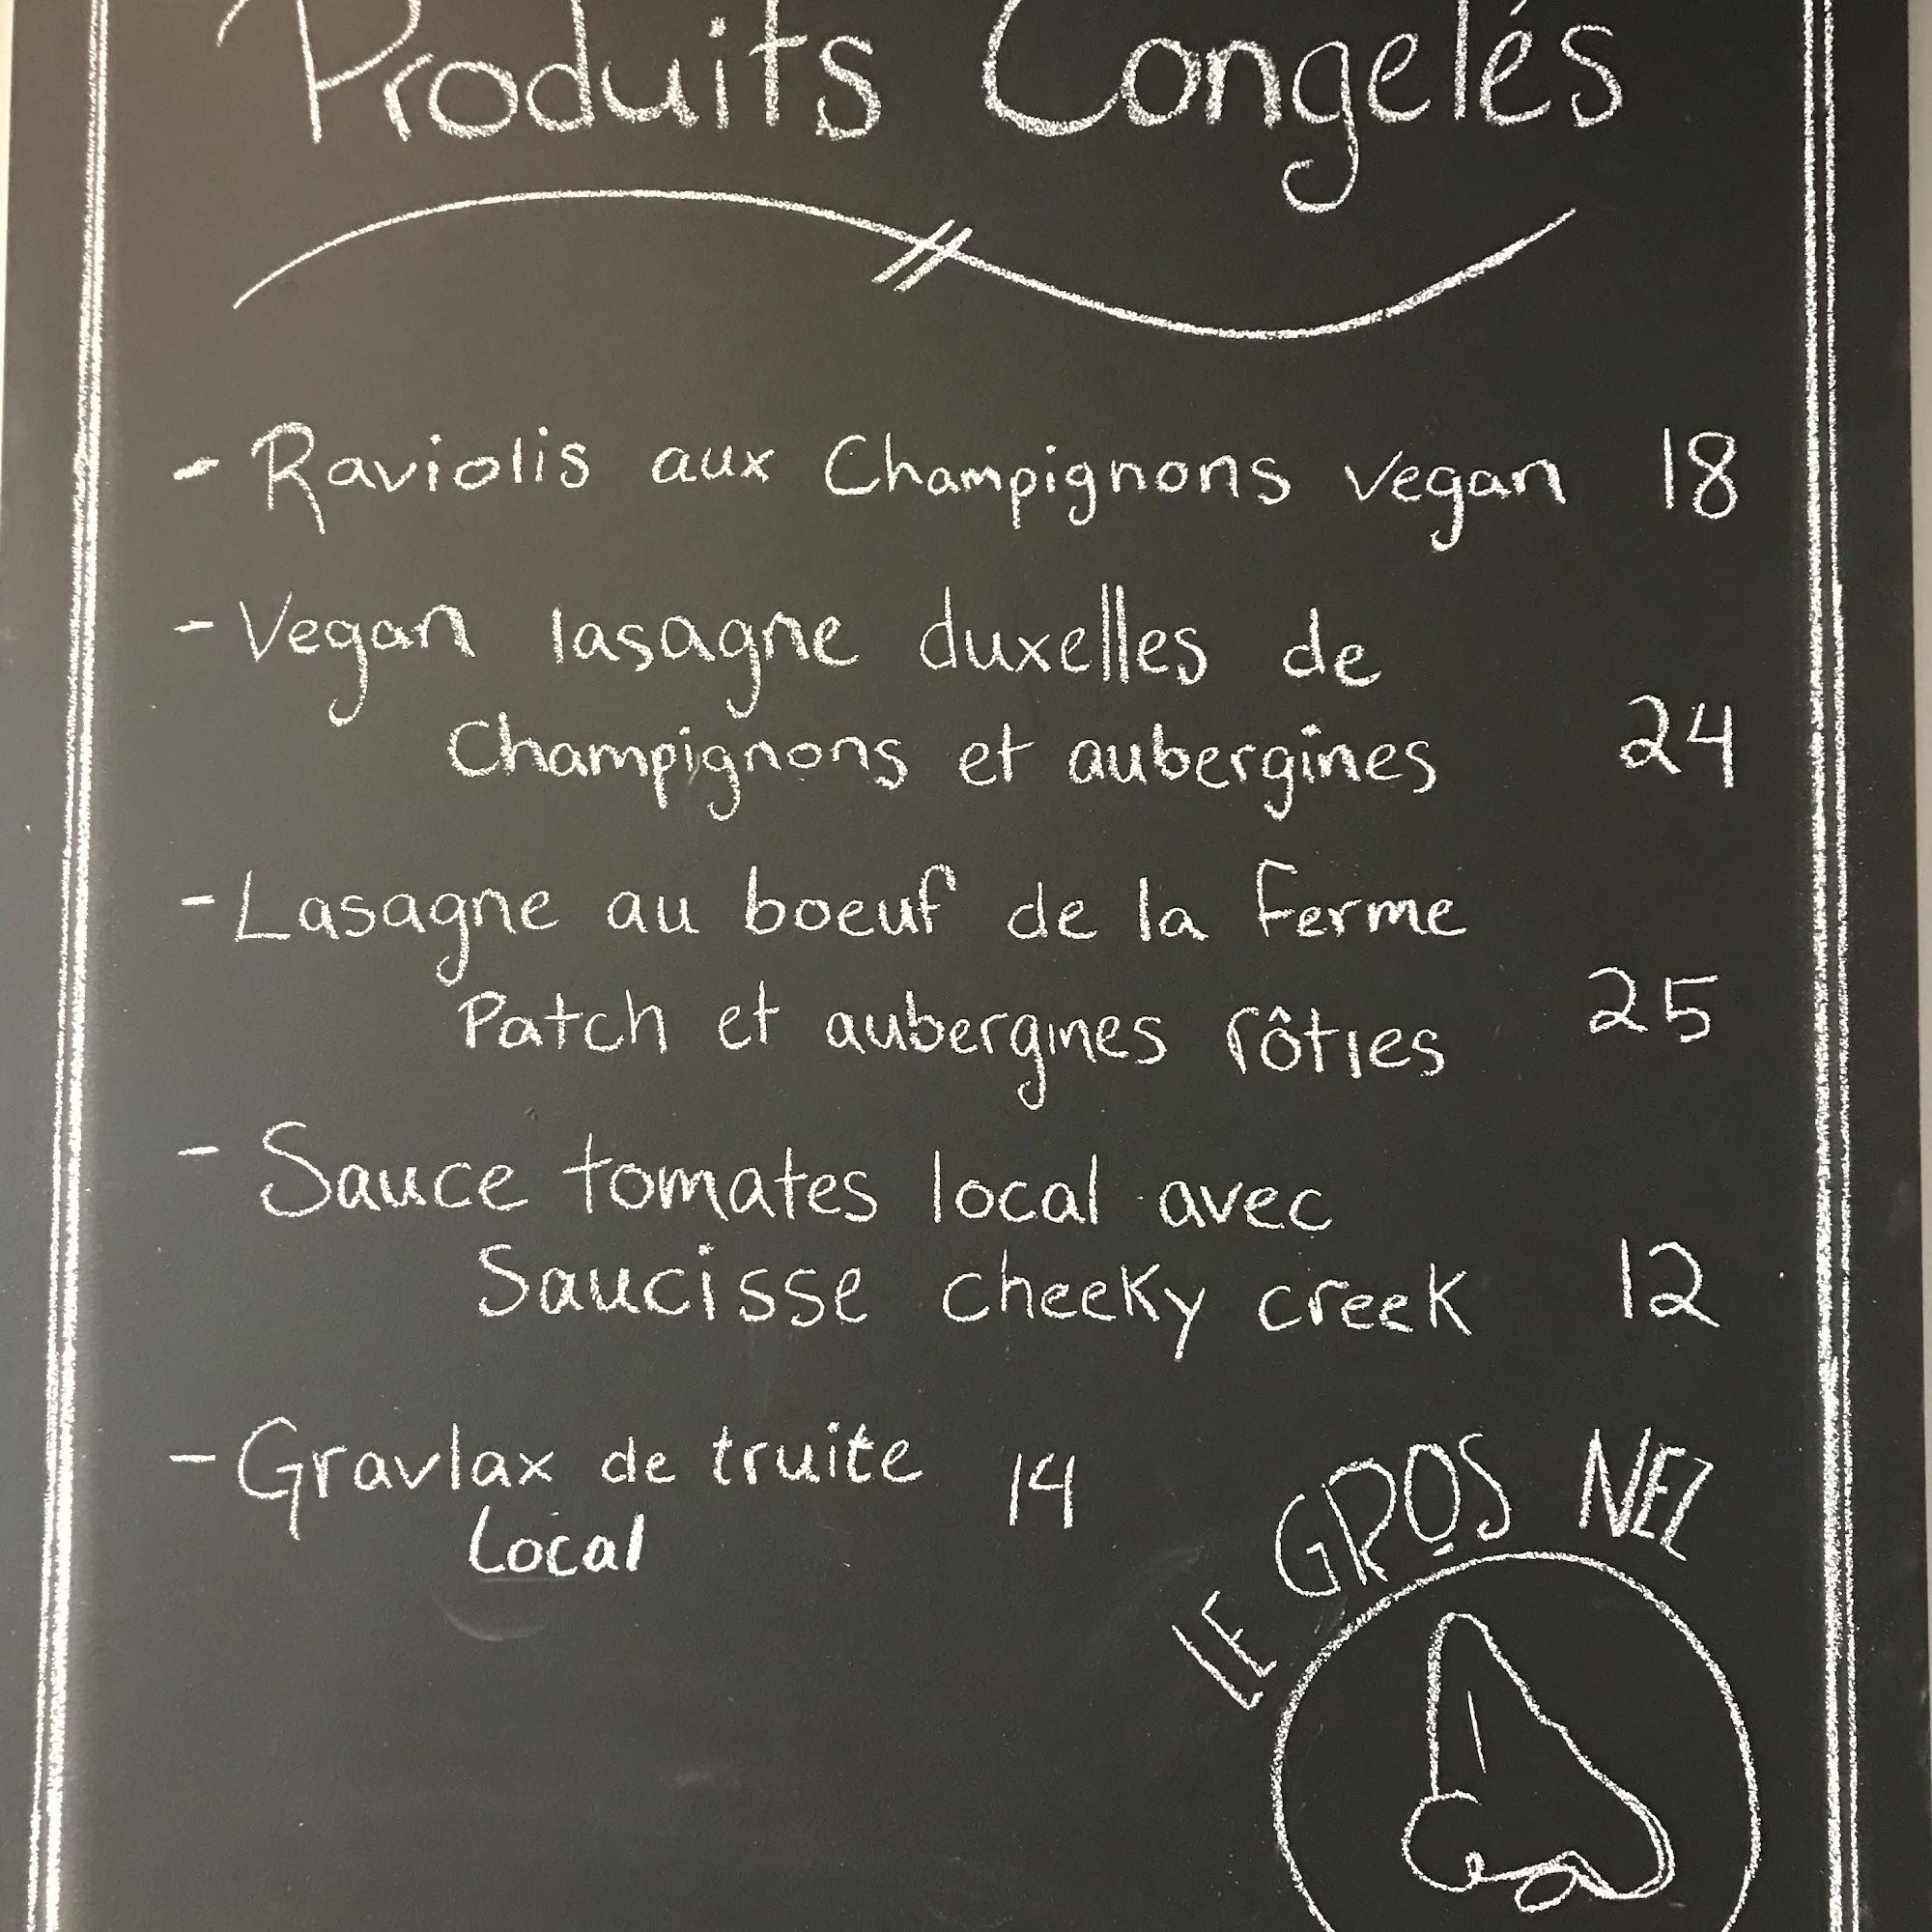 Produits Congelés
- Raviolis aux Champignons vegan 18
- Vegan lasagne duxelles de
Champignons et aubergines 24
- Lasagne au boeuf de la ferme
Patch et aubergines rôties 25
- Sauce tomates local avec
Saucisse cheeky creek 12
- Gravlax de truite 14
Local
LE GROS NEZ